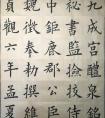 九成宮醴泉銘
秘書監撿挍侍
中鉅鹿郡公臣
魏徵奉勑撰維
貞觀六年孟夏